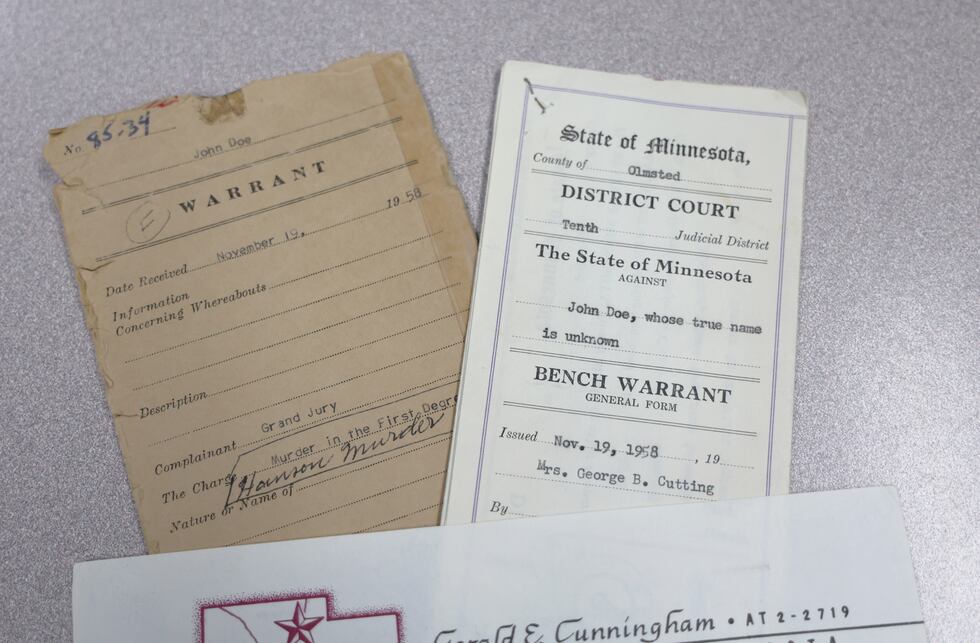 No. 85-34
John Doe
WARRANT
E
Date Received November 19, 1958
Information
Concerning Whereabouts
Description
Complainant Grand Jury
The Charge Murder in the First Degre
Hanson Murder
Nature or Name of
State of Minnesota,
County of Olmsted
DISTRICT COURT
Tenth Judicial District
The State of Minnesota
AGAINST
John Doe, whose true name
is unknown
BENCH WARRANT
GENERAL FORM
Issued Nov. 19, 1958, 19
Mrs. George B. Cutting
By
Gerald E. Cunningham • AT 2-2719